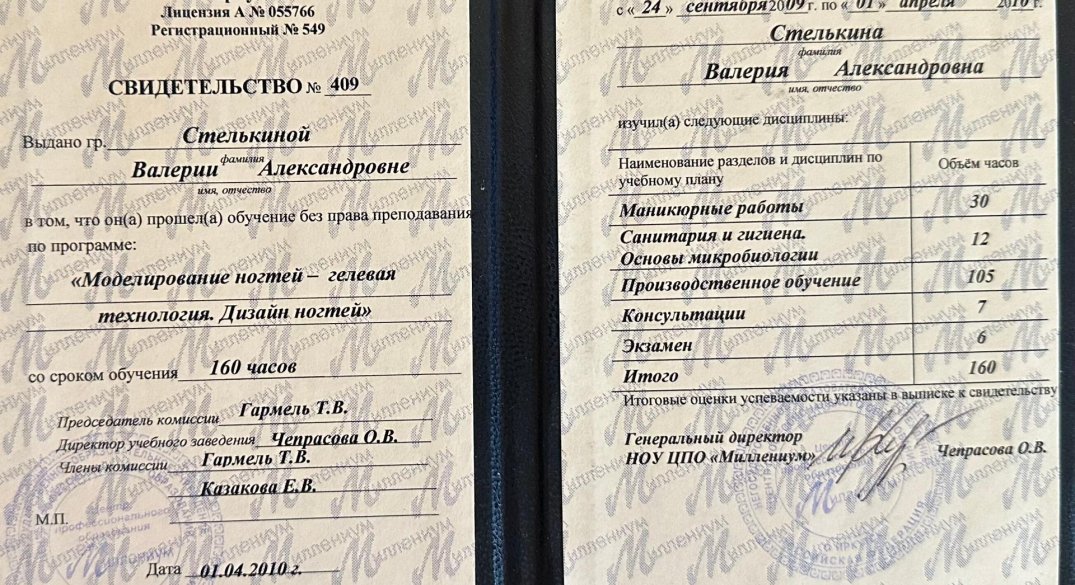 Лицензия А № 055766
Регистрационный № 549
СВИДЕТЕЛЬСТВО № 409
Выдано гр. Стелькиной
фамилия
Валерии Александровне
имя, отчество
в том, что он(а) прошел(а) обучение без права преподавания
по программе:
«Моделирование ногтей – гелевая
технология. Дизайн ногтей»
со сроком обучения 160 часов
Председатель комиссии Гармель Т.В.
Директор учебного заведения Чепрасова О.В.
Члены комиссии Гармель Т.В.
Казакова Е.В.
М.П.
Центр
профессионального
образования
Миллениум
Дата 01.04.2010 г.
с « 24 » сентября 2009 г. по « 01 » апреля 2010 г.
Стелькина
фамилия
Валерия Александровна
имя, отчество
изучил(а) следующие дисциплины:
Наименование разделов и дисциплин по учебному плану Объём часов
Маникюрные работы 30
Санитария и гигиена.
Основы микробиологии 12
Производственное обучение 105
Консультации 7
Экзамен 6
Итого 160
Итоговые оценки успеваемости указаны в выписке к свидетельству
Генеральный директор
НОУ ЦПО «Миллениум» Чепрасова О.В.